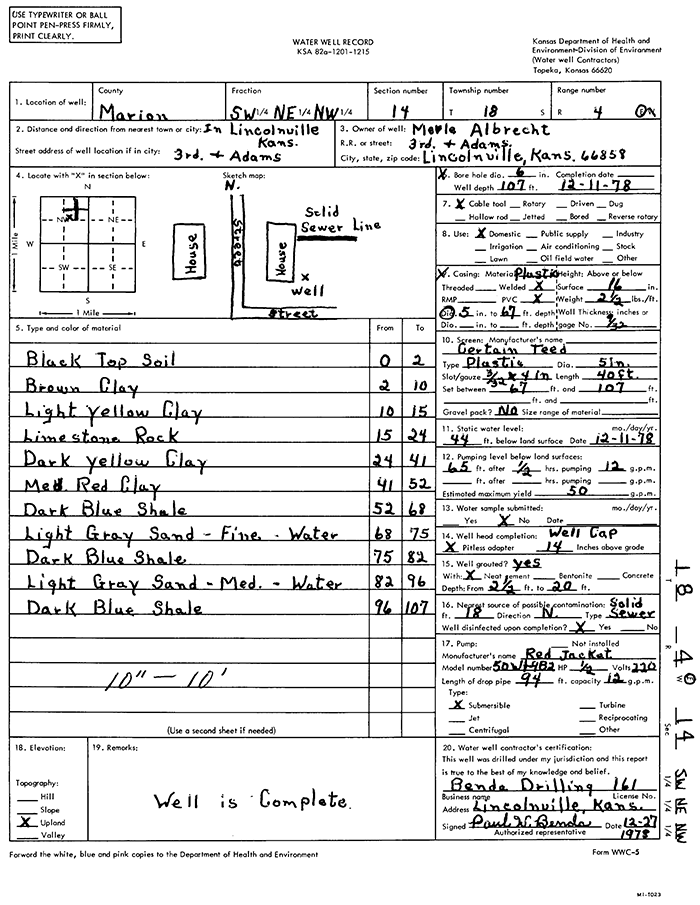 USE TYPEWRITER OR BALL
POINT PEN-PRESS FIRMLY,
PRINT CLEARLY.
WATER WELL RECORD
KSA 82a-1201-1215
Kansas Department of Health and
Environment-Division of Environment
(Water well Contractors)
Topeka, Kansas 66620
1. Location of well: County Marion Fraction SW 1/4 NE 1/4 NW 1/4 Section number 14 Township number T 18 S Range number R 4 E
2. Distance and direction from nearest town or city: In Lincolnville Kans.
Street address of well location if in city: 3rd. + Adams
3. Owner of well: Merle Albrecht
R.R. or street: 3rd. + Adams
City, state, zip code: Lincolnville, Kans. 66858
4. Locate with "X" in section below:
N
NW NE
W E
SW SE
S
1 Mile
1 Mile
Sketch map:
N.
House
Street
House
Solid
Sewer Line
X
well
Street
6. Bore hole dia. 6 in. Completion date
Well depth 107 ft. 12-11-78
7. X Cable tool Rotary Driven Dug
Hollow rod Jetted Bored Reverse rotary
8. Use: X Domestic Public supply Industry
Irrigation Air conditioning Stock
Lawn Oil field water Other
9. Casing: Material Plastic Height: Above or below
Threaded Welded X Surface 16 in.
RMP PVC X Weight 2 1/2 lbs./ft.
Dia. 5 in. to 67 ft. depth Wall Thickness: inches or
Dia. in. to ft. depth gage No. 9/32
5. Type and color of material From To
Black Top Soil 0 2
Brown Clay 2 10
Light Yellow Clay 10 15
Limestone Rock 15 24
Dark Yellow Clay 24 41
Med. Red Clay 41 52
Dark Blue Shale 52 68
Light Gray Sand - Fine. - Water 68 75
Dark Blue Shale 75 82
Light Gray Sand - Med. - Water 82 96
Dark Blue Shale 96 107
10" - 10'
(Use a second sheet if needed)
10. Screen: Manufacturer's name
Certain Teed
Type Plastic Dia. 5 in.
Slot/gauze 3/32 x 4 in Length 40 ft.
Set between 67 ft. and 107 ft.
ft. and ft.
Gravel pack? No Size range of material
11. Static water level: mo./day/yr.
44 ft. below land surface Date 12-11-78
12. Pumping level below land surfaces:
65 ft. after 1/2 hrs. pumping 12 g.p.m.
ft. after hrs. pumping g.p.m.
Estimated maximum yield 50 g.p.m.
13. Water sample submitted: mo./day/yr.
Yes X No Date
14. Well head completion: Well Cap
X Pitless adapter 14 Inches above grade
15. Well grouted? yes
With: X Neat cement Bentonite Concrete
Depth: From 2 1/2 ft. to 20 ft.
16. Nearest source of possible contamination: Solid
ft. 18 Direction N. Type Sewer
Well disinfected upon completion? X Yes No
17. Pump: Not installed
Manufacturer's name Red Jacket
Model number HP 1/2 Volts 220
Length of drop pipe 94 ft. capacity 12 g.p.m.
Type:
X Submersible Turbine
Jet Reciprocating
Centrifugal Other
18. Elevation:
Topography:
Hill
Slope
X Upland
Valley
19. Remarks:
Well is Complete.
20. Water well contractor's certification:
This well was drilled under my jurisdiction and this report
is true to the best of my knowledge and belief.
Benda Drilling 161
Business name License No.
Address Lincolnville, Kans.
Signed Paul W. Benda Date 12-27
Authorized representative 1978
Forward the white, blue and pink copies to the Department of Health and Environment
Form WWC-5
T 18 - R 4 E W Sec 14 1/4 SW 1/4 NE 1/4 NW
M1-1023